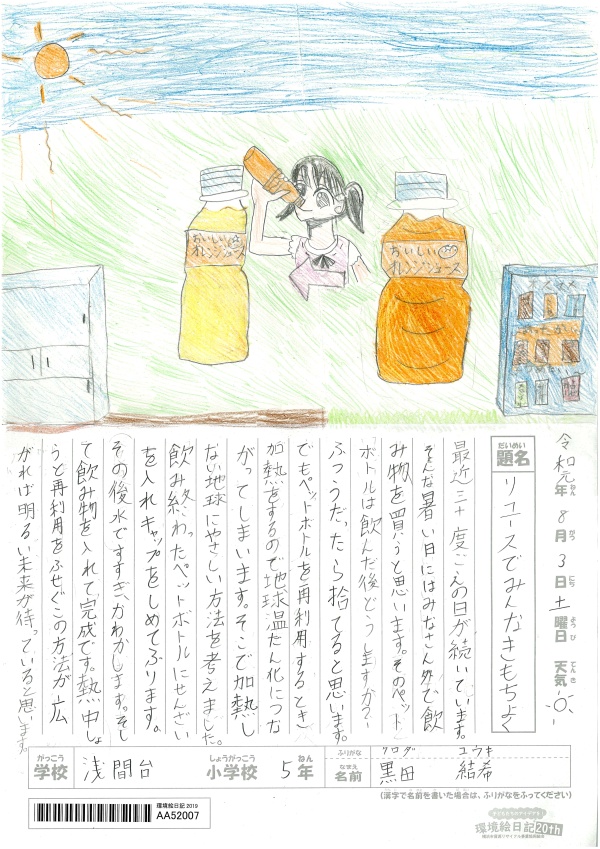 おいしい
オレンジジュース
おいしい
オレンジジュース
令和元年 8月 3日 土曜日 天気
ねん
がつ
にち
ようび
てんき
だいめい
題名
リユースでみんなきもちよく
最近三十度ごえの日が続いています。
そんな暑い日にはみなさん外で飲
み物を買うと思います。そのペット
ボトルは飲んだ後どうしますか?
ふつうだったら捨てると思います。
でもペットボトルを再利用するとき
加熱をするので地球温だん化につな
がってしまいます。そこで加熱し
ない地球にやさしい方法を考えました。
飲み終わったペットボトルにせんざい
を入れキャップをしめてふります。
その後水ですすぎ、かわかします。そし
て飲み物を入れて完成です。熱中しょ
うと再利用をふせぐこの方法が広
がれば明るい未来が待っていると思います。
がっこう
学校
浅間台
しょうがっこう
小学校
5年
ねん
ふりがな
クロダ ユウキ
なまえ
名前
黒田 結希
(漢字で名前を書いた場合は、ふりがなをふってください)
環境絵日記 2019
AA52007
環境絵日記20th